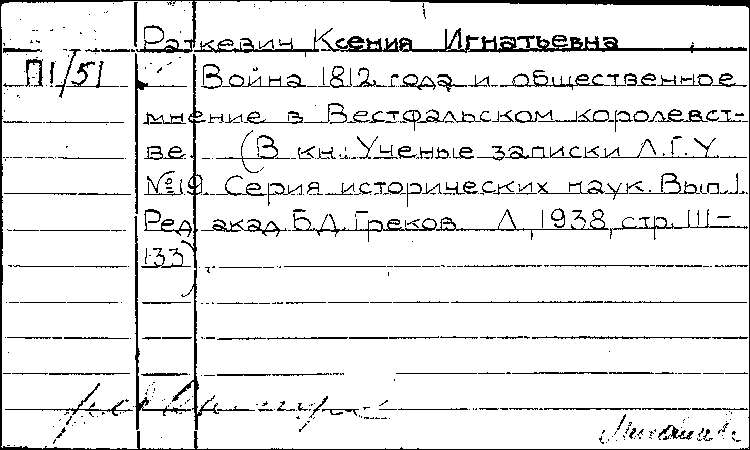 Раткевич Ксения Игнатьевна
П1/51 Война 1812 года и общественное
мнение в Вестфальском королевст-
ве. (В кн.: Ученые записки Л.Г.У.
№19. Серия исторических наук. Вып. 1.
Ред. акад. Б.Д. Греков. Л., 1938, стр. 111-
133)